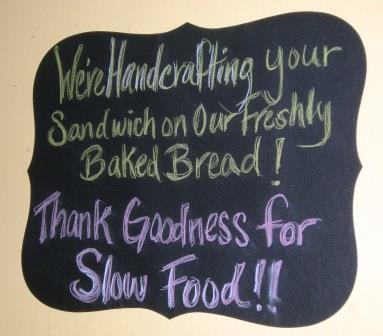 We're Handcrafting your
Sandwich on Our Freshly
Baked Bread!
Thank Goodness for
Slow Food!!